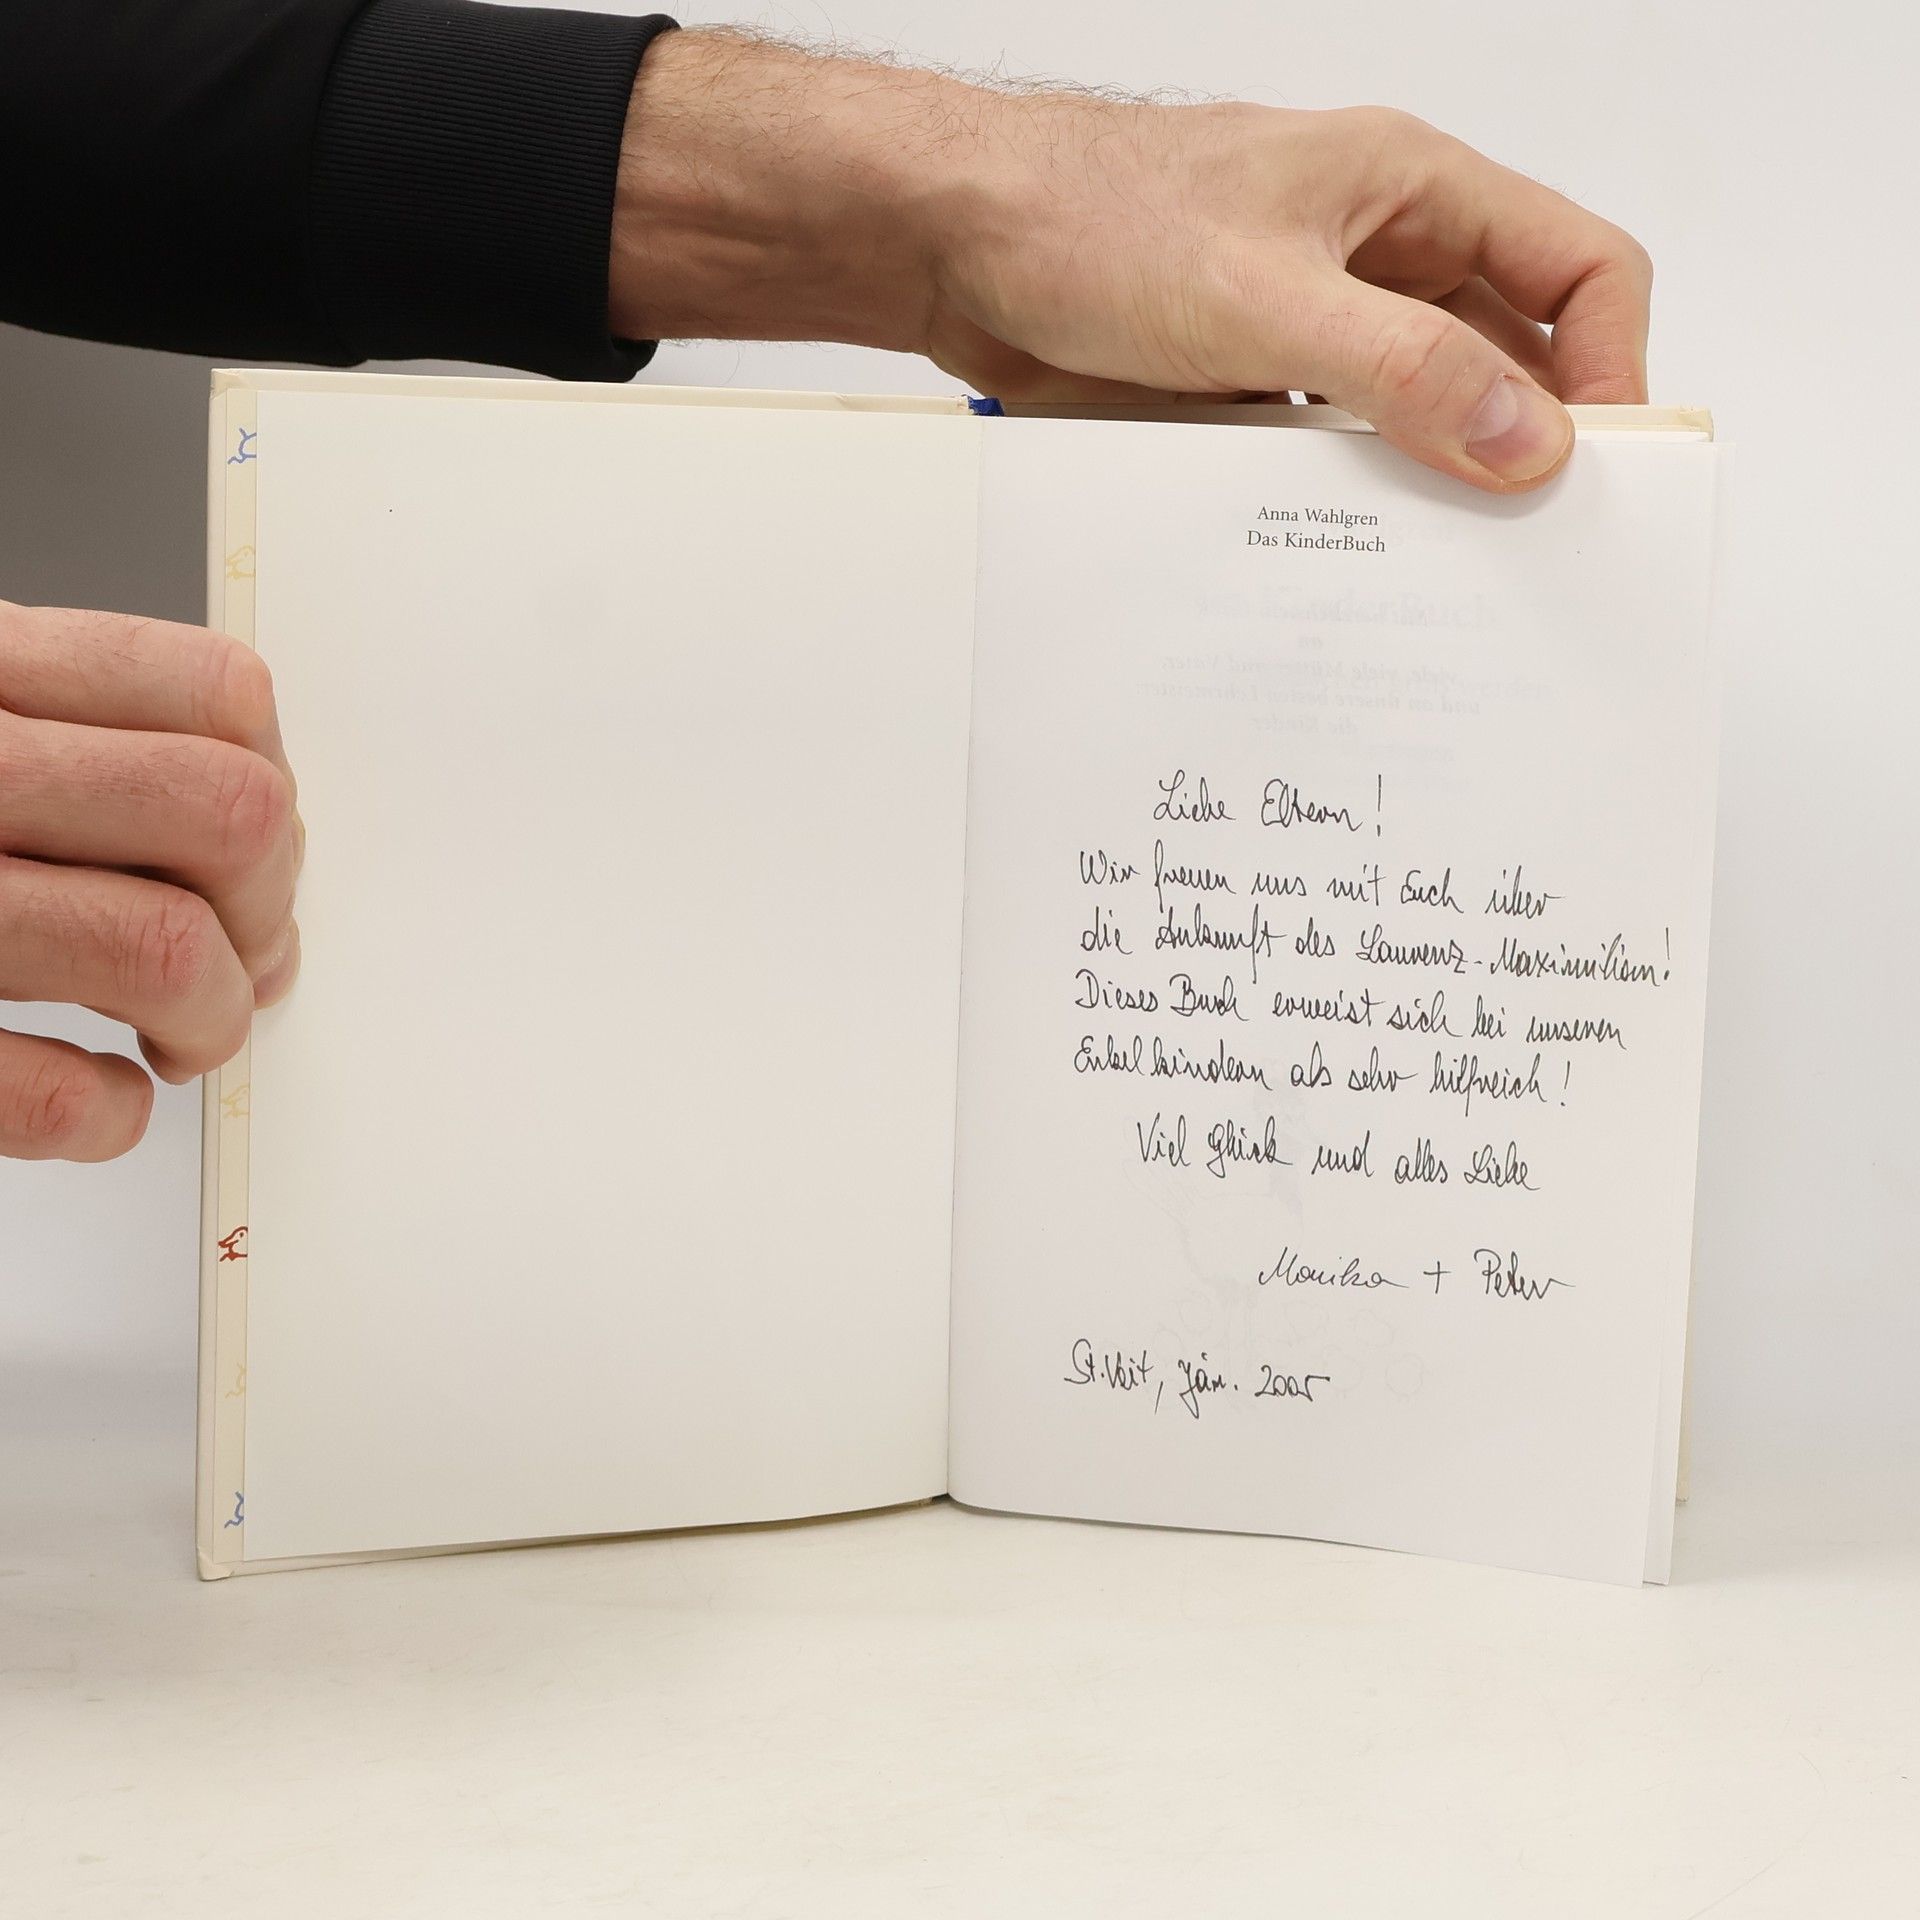 Anna Wahlgren
Das KinderBuch
Liebe Eltern!
Wir freuen uns mit Euch über
die Ankunft des Laurenz-Maximilian!
Dieses Buch erweist sich bei unseren
Enkelkindern als sehr hilfreich!
Viel Glück und alles Liebe
Monika + Peter
St. Veit, Jän. 2005